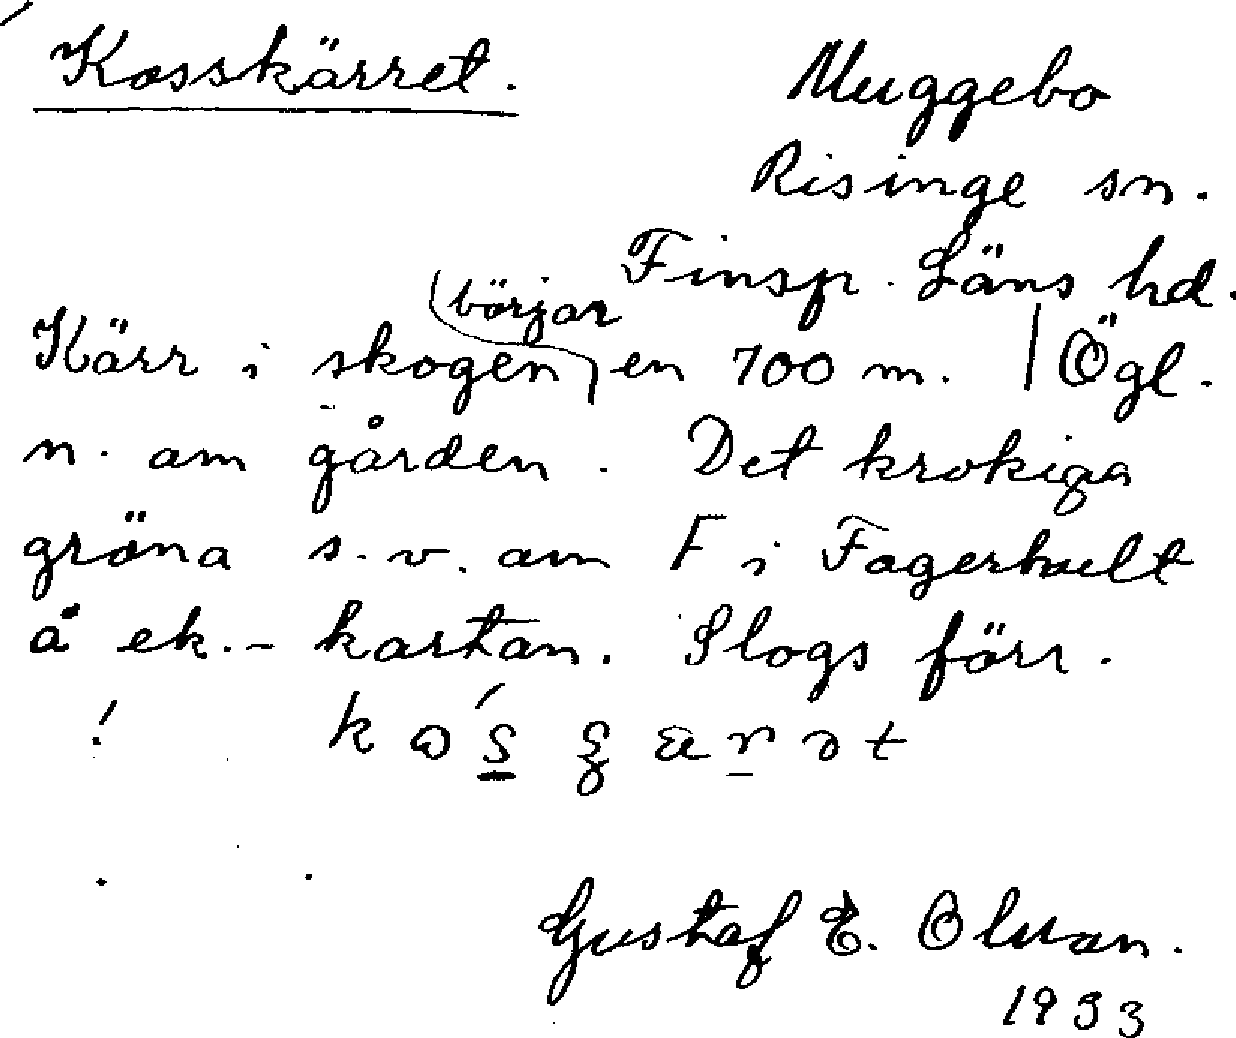 Kosskärret.
Muggebo
Risinge sn.
Finsp. Läns hd.
börjar
Kärr i skogen, en 700 m. | Ögl.
n. om gården. Det krokiga
gröna s.v. om F i Fagerhult
å ek.-kartan. Slogs förr.
!
Gustaf E. Olsson.
1933